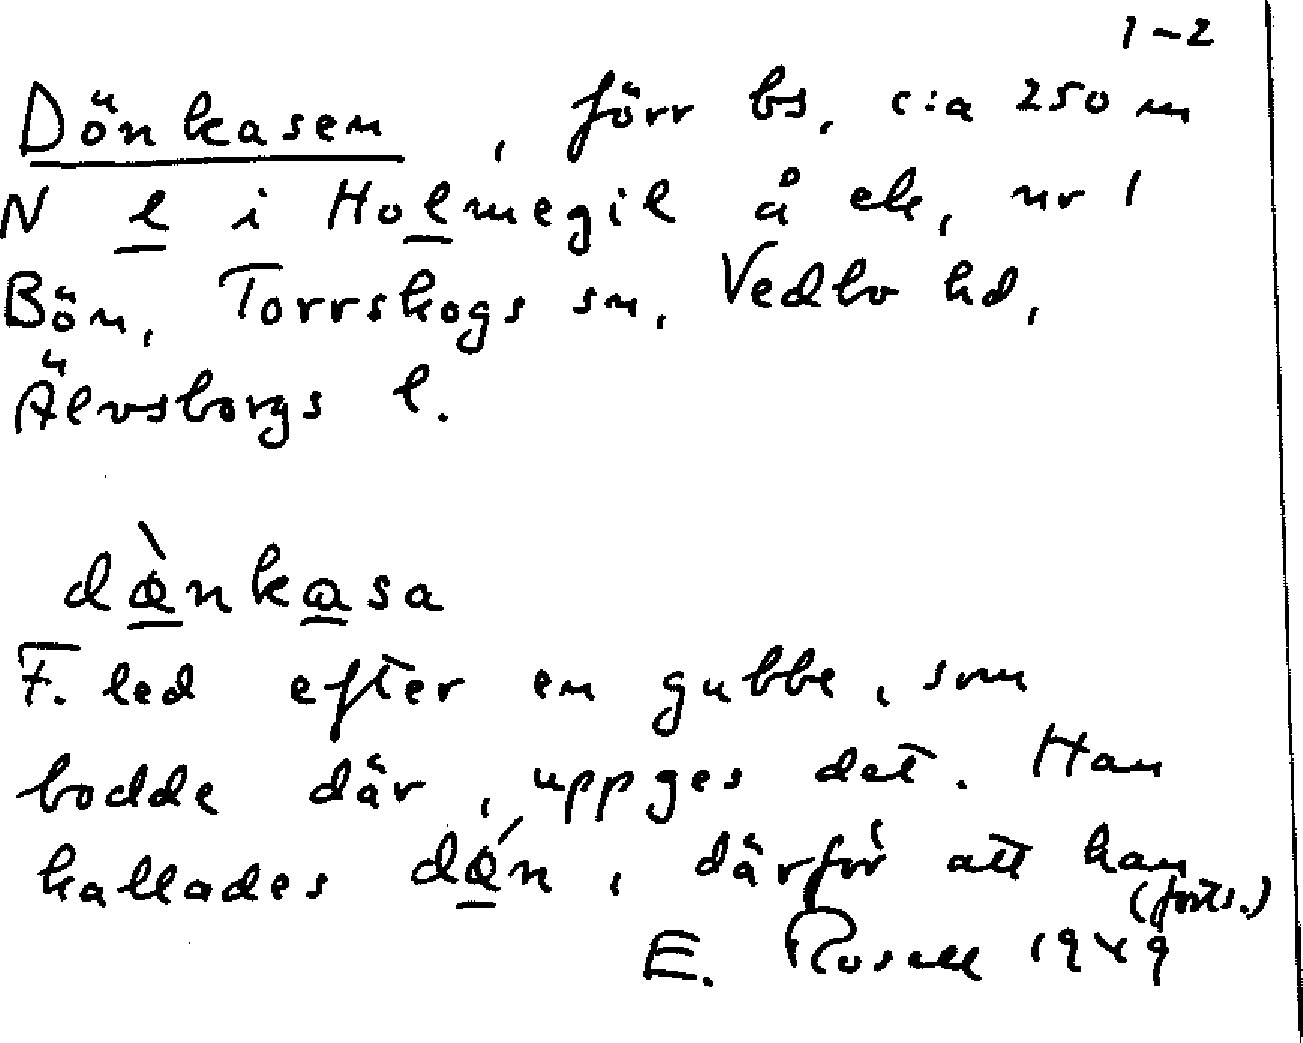 1-2
Dönkasen, förr bs, c:a 250 m
N l i Holmegil å ek, nr 1
Bön, Torrskogs sn, Vedbo hd,
Älvsborgs l.
dø̀nkasa
F. led efter en gubbe, som
bodde där, uppges det. Han
kallades dǿn, därför att han
(forts.)
E. Rosell 1949